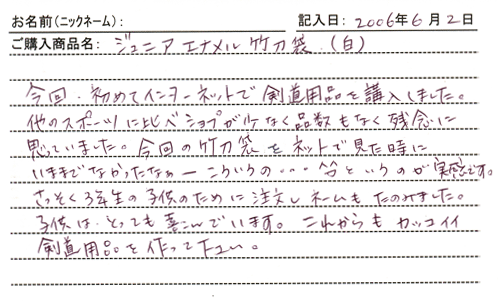 お名前(ニックネーム):　記入日: 2006年6月2日
ご購入商品名: ジュニアエナメル竹刀袋 (白)
今回、初めてインターネットで剣道用品を購入しました。
他のスポーツに比べショップが少なく品数もなく残念に
思っていました。今回の竹刀袋をネットで見た時に
いままでなかったなぁーこういうの・・・というのが実感です。
さっそく3年生の子供のために注文しネームもたのみました。
子供は、とっても喜こんでいます。これからもカッコイイ
剣道用品を作って下さい。